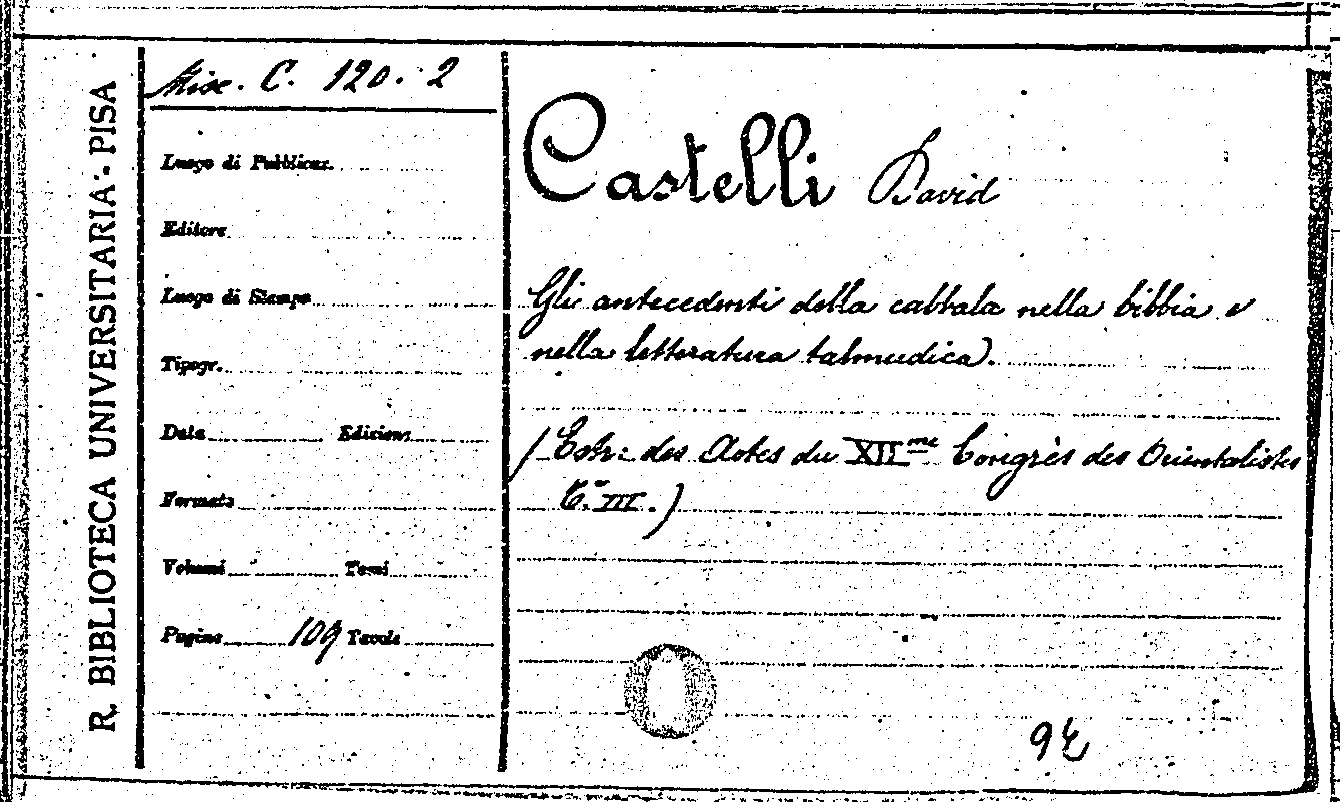 R. BIBLIOTECA UNIVERSITARIA - PISA
Misc. C. 120. 2
Luogo di Pubblicaz.
Editore
Luogo di Stampa
Tipogr.
Data Edizione
Formato
Volumi Tomi
Pagine 109 Tavole
Castelli David
Gli antecedenti della cabbala nella bibbia e
nella letteratura talmudica.
(Estr: des Actes du XIIme Congrès des Orientalistes
T. III.)